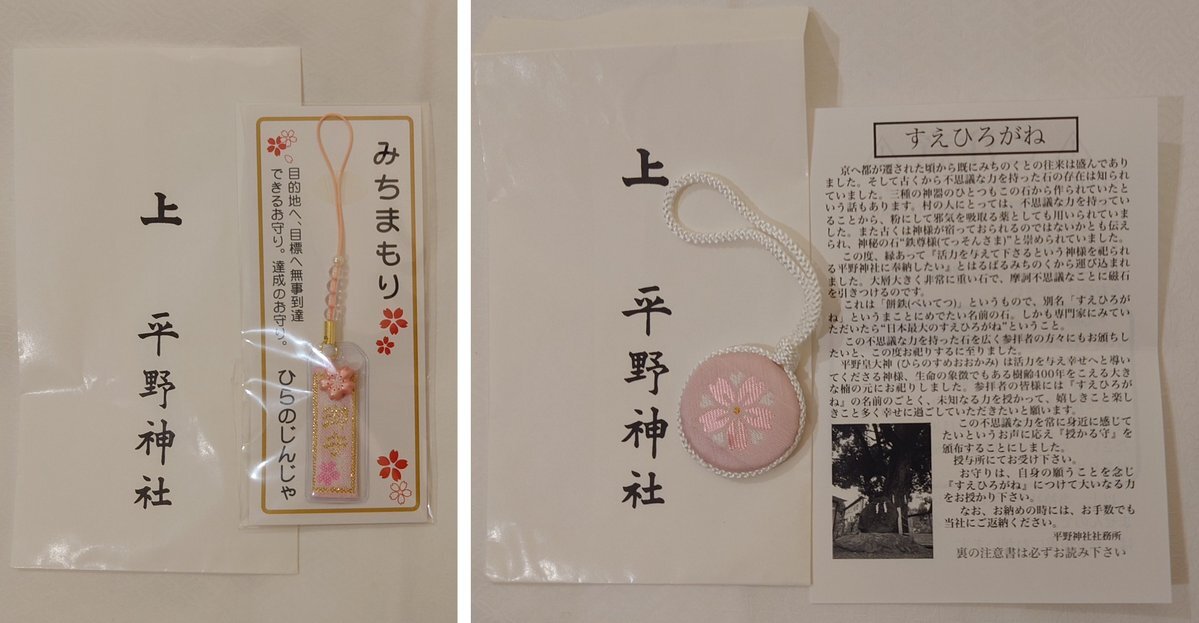 上
平野神社
みちまもり
目的地へ、目標へ無事到達
できるお守り。達成のお守り。
ひらのじんじゃ
上
平野神社
すえひろがね
京へ都が遷された頃から既にみちのくとの往来は盛んであり
ました。そして古くから不思議な力を持った石の存在は知られ
ていました。三種の神器のひとつもこの石から作られていたと
いう話もあります。村の人にとっては、不思議な力を持ってい
ることから、粉にして邪気を吸取る薬としても用いられていま
した。また古くは神様が宿っておられるのではないかとも伝え
られ、神秘の石“鉄尊様(てっそんさま)”と崇められていました。
この度、縁あって『活力を与えて下さるという神様を祀られ
る平野神社に奉納したい』とはるばるみちのくから運び込まれ
ました。大層大きく非常に重い石で、摩訶不思議なことに磁石
を引きつけるのです。
これは「餅鉄(べいてつ)」というもので、別名「すえひろが
ね」というまことにめでたい名前の石。しかも専門家にみてい
ただいたら“日本最大のすえひろがね”ということ。
この不思議な力を持った石を広く参拝者の方々にもお頒ちし
たいと、この度お祀りするに至りました。
平野皇大神(ひらのすめおおかみ)は活力を与え幸せへと導い
てくださる神様、生命の象徴でもある樹齢400年をこえる大き
な楠の元にお祀りしました。参拝者の皆様には『すえひろが
ね』の名前のごとく、未知なる力を授かって、嬉しきこと楽し
きこと多く幸せに過ごしていただきたいと願います。
この不思議な力を常に身近に感じて
たいというお声に応え『授かる守』を
頒布することにしました。
授与所にてお受け下さい。
お守りは、自身の願うことを念じ
『すえひろがね』につけて大いなる力
をお授かり下さい。
なお、お納めの時には、お手数でも
当社にご返納ください。
平野神社社務所
裏の注意書は必ずお読み下さい